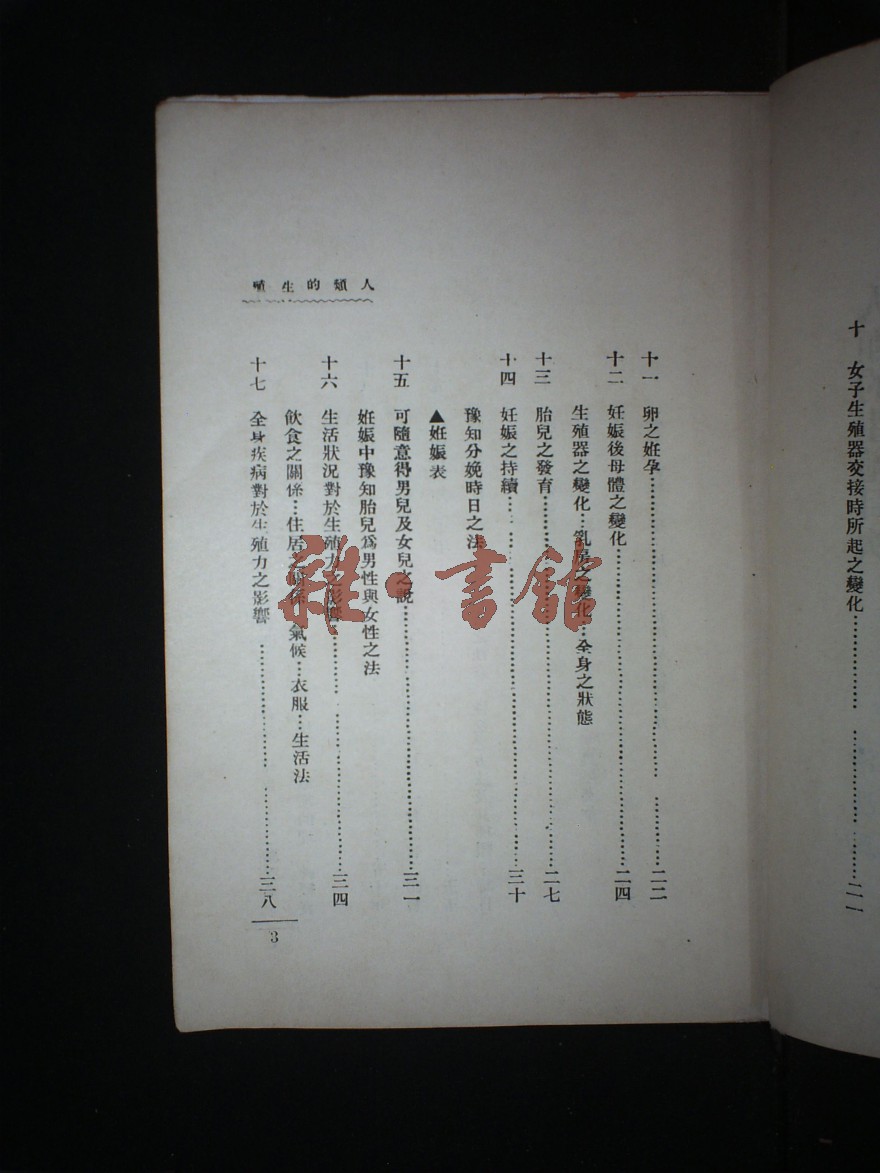 十 女子生殖器交接時所起之變化……………… ………………二一
人類的生殖
十一 卵之妊孕……………………………… …………二二
十二 妊娠後母體之變化………………………………二四
生殖器之變化…乳房之變化…全身之狀態
十三 胎兒之發育………………………………二七
十四 妊娠之持續…… ………………………………三十
豫知分娩時日之法
▲妊娠表
十五 可隨意得男兒及女兒之說………………………………三一
妊娠中豫知胎兒爲男性與女性之法
十六 生活狀況對於生殖力之影響……… ………………三四
飲食之關係…住居之關係 氣候…衣服…生活法
十七 全身疾病對於生殖力之影響 …………… …………三八
3
雜·書館